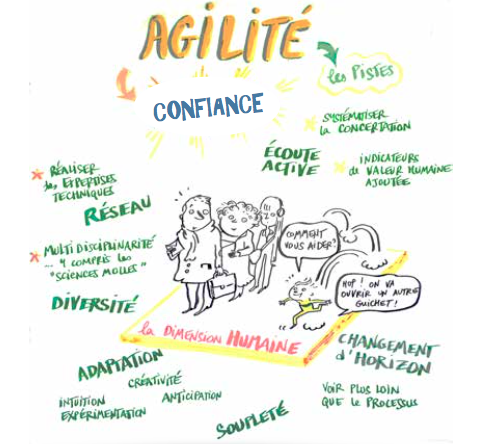 AGILITÉ
les PISTES
CONFIANCE
SYSTÉMATISER
la CONCERTATION
ÉCOUTE
ACTIVE
INDICATEURS
de VALEUR HUMAINE
AJOUTÉE
RÉALISER
des EXPERTISES
TECHNIQUES
RÉSEAU
MULTI DISCIPLINARITÉ
... Y COMPRIS les
"SCIENCES MOLLES"
COMMENT
VOUS AIDER?
HOP! ON VA
OUVRIR UN AUTRE
GUICHET!
DIVERSITÉ
la DIMENSION HUMAINE
CHANGEMENT
d'HORIZON
ADAPTATION
CRÉATIVITÉ
INTUITION
ANTICIPATION
EXPÉRIMENTATION
VOIR PLUS LOIN
QUE le PROCESSUS
SOUPLETÉ